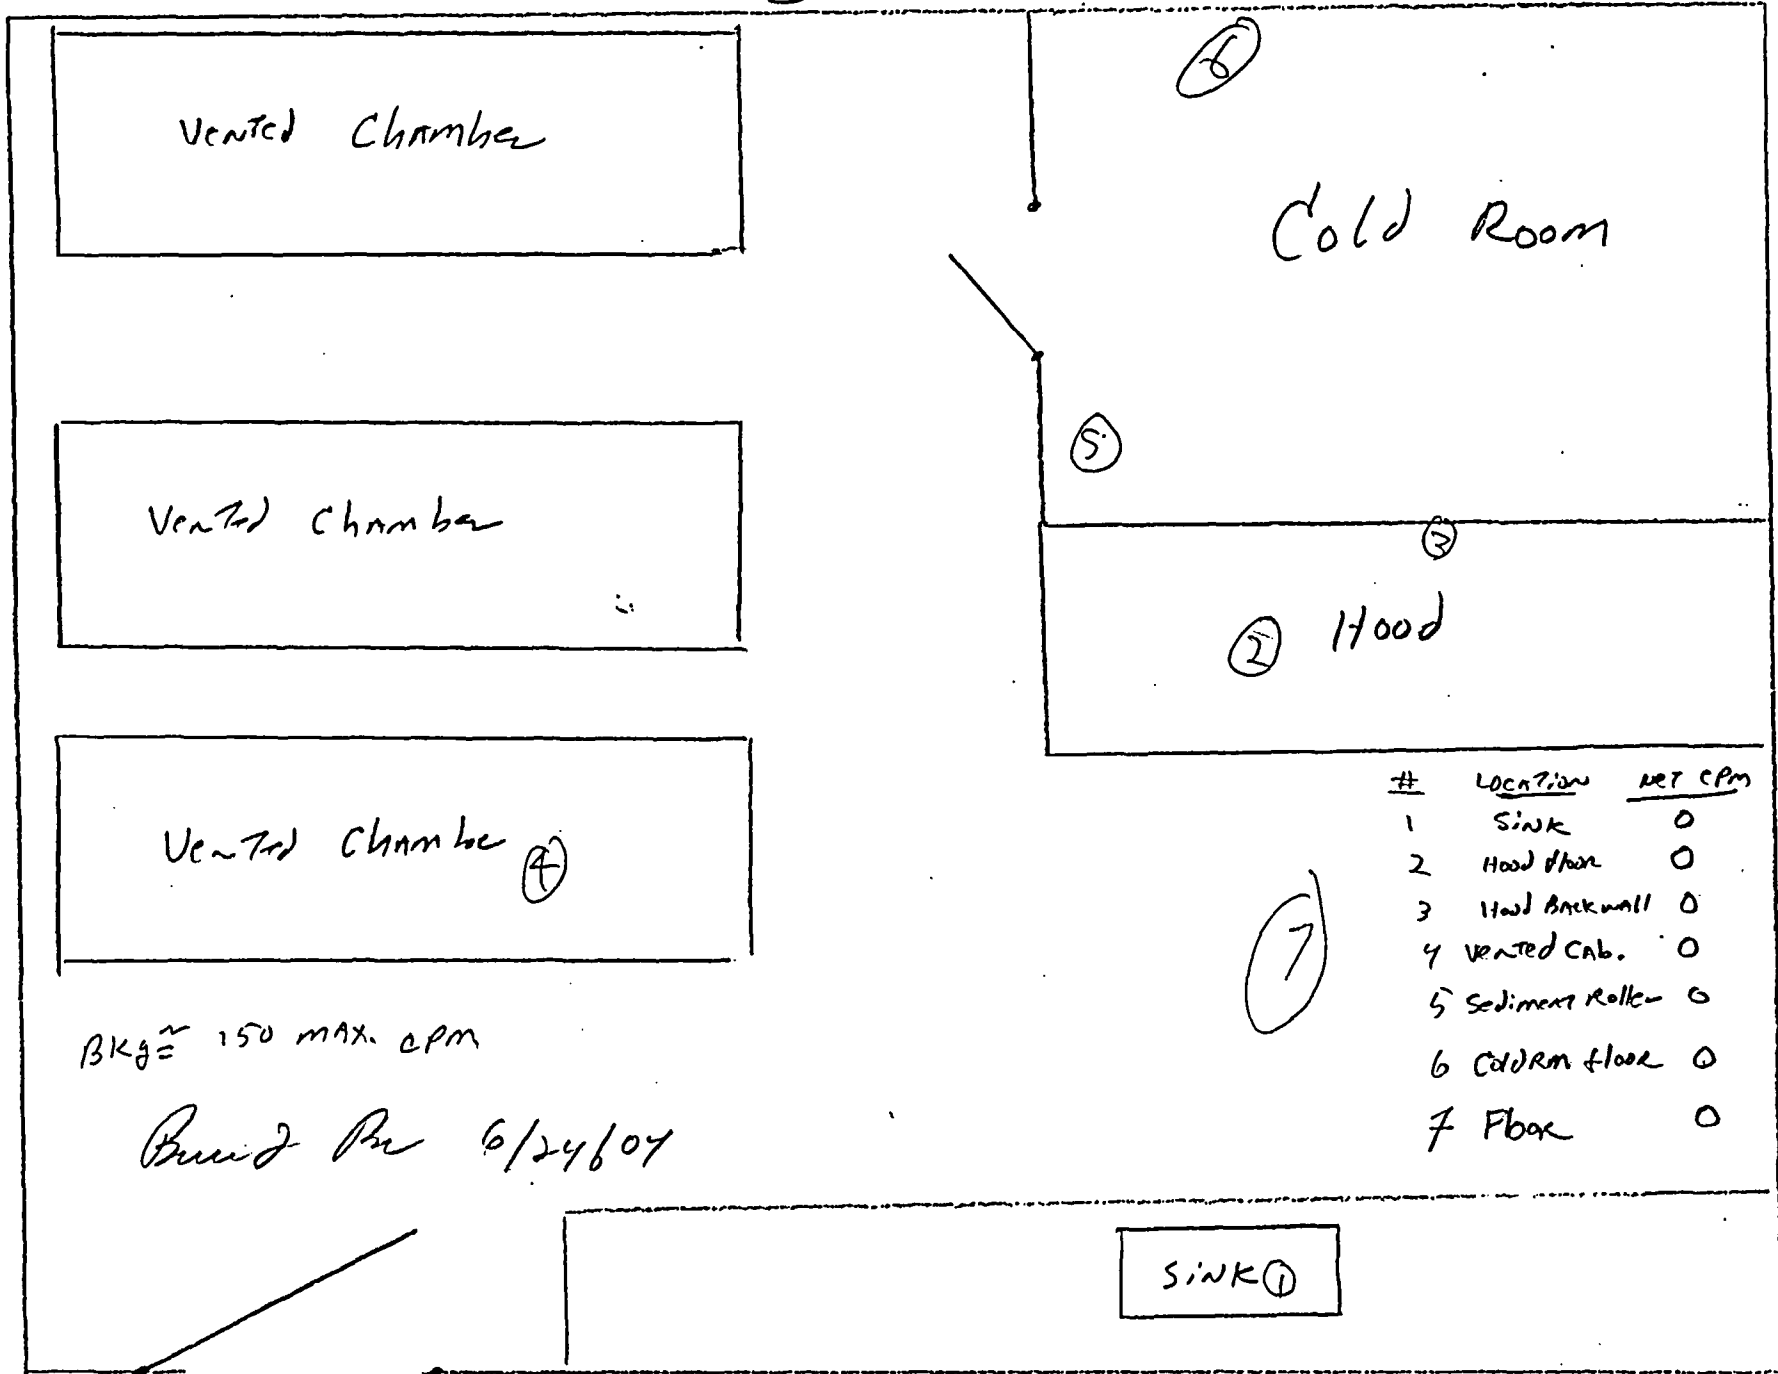 6
Vented Chamber
Cold Room
5
Vented Chamber
3
2 Hood
# Location Net CPM
1 Sink 0
2 Hood floor 0
3 Hood Backwall 0
4 Vented Cab. 0
5 Sediment Roller 0
6 Cold Rm floor 0
7 Floor 0
Vented Chambe 4
7
Bkg ≅ 150 max. cpm
6/24/04
Sink 1